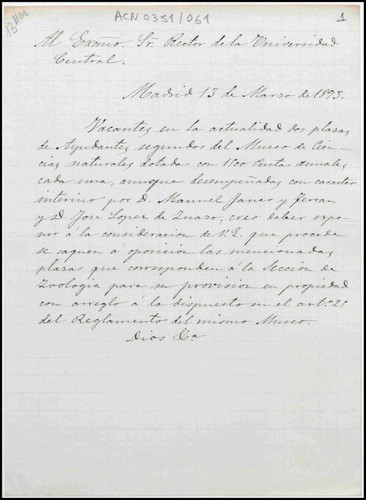 ACN0351/061
1
Al Excmo. Sr. Rector de la Universidad
Central.
Madrid 13 de Marzo de 1893.
Vacantes en la actualidad dos plazas
de Ayudantes segundos del Museo de Cien
cias naturales dotadas con 1500 pesetas anuales
cada una, aunque desempeñadas con caracter
interino por D. Manuel Janer y Ferran
y D. José Lopez de Zuazo, creo deber expo
ner á la consideracion de V.E. que procede
se saquen á oposición las mencionadas
plazas que corresponden á la Sección de
Zoologia para su provisión en propiedad
con arreglo á lo dispuesto en el art.º 25
del Reglamento del mismo Museo.
Dios &a